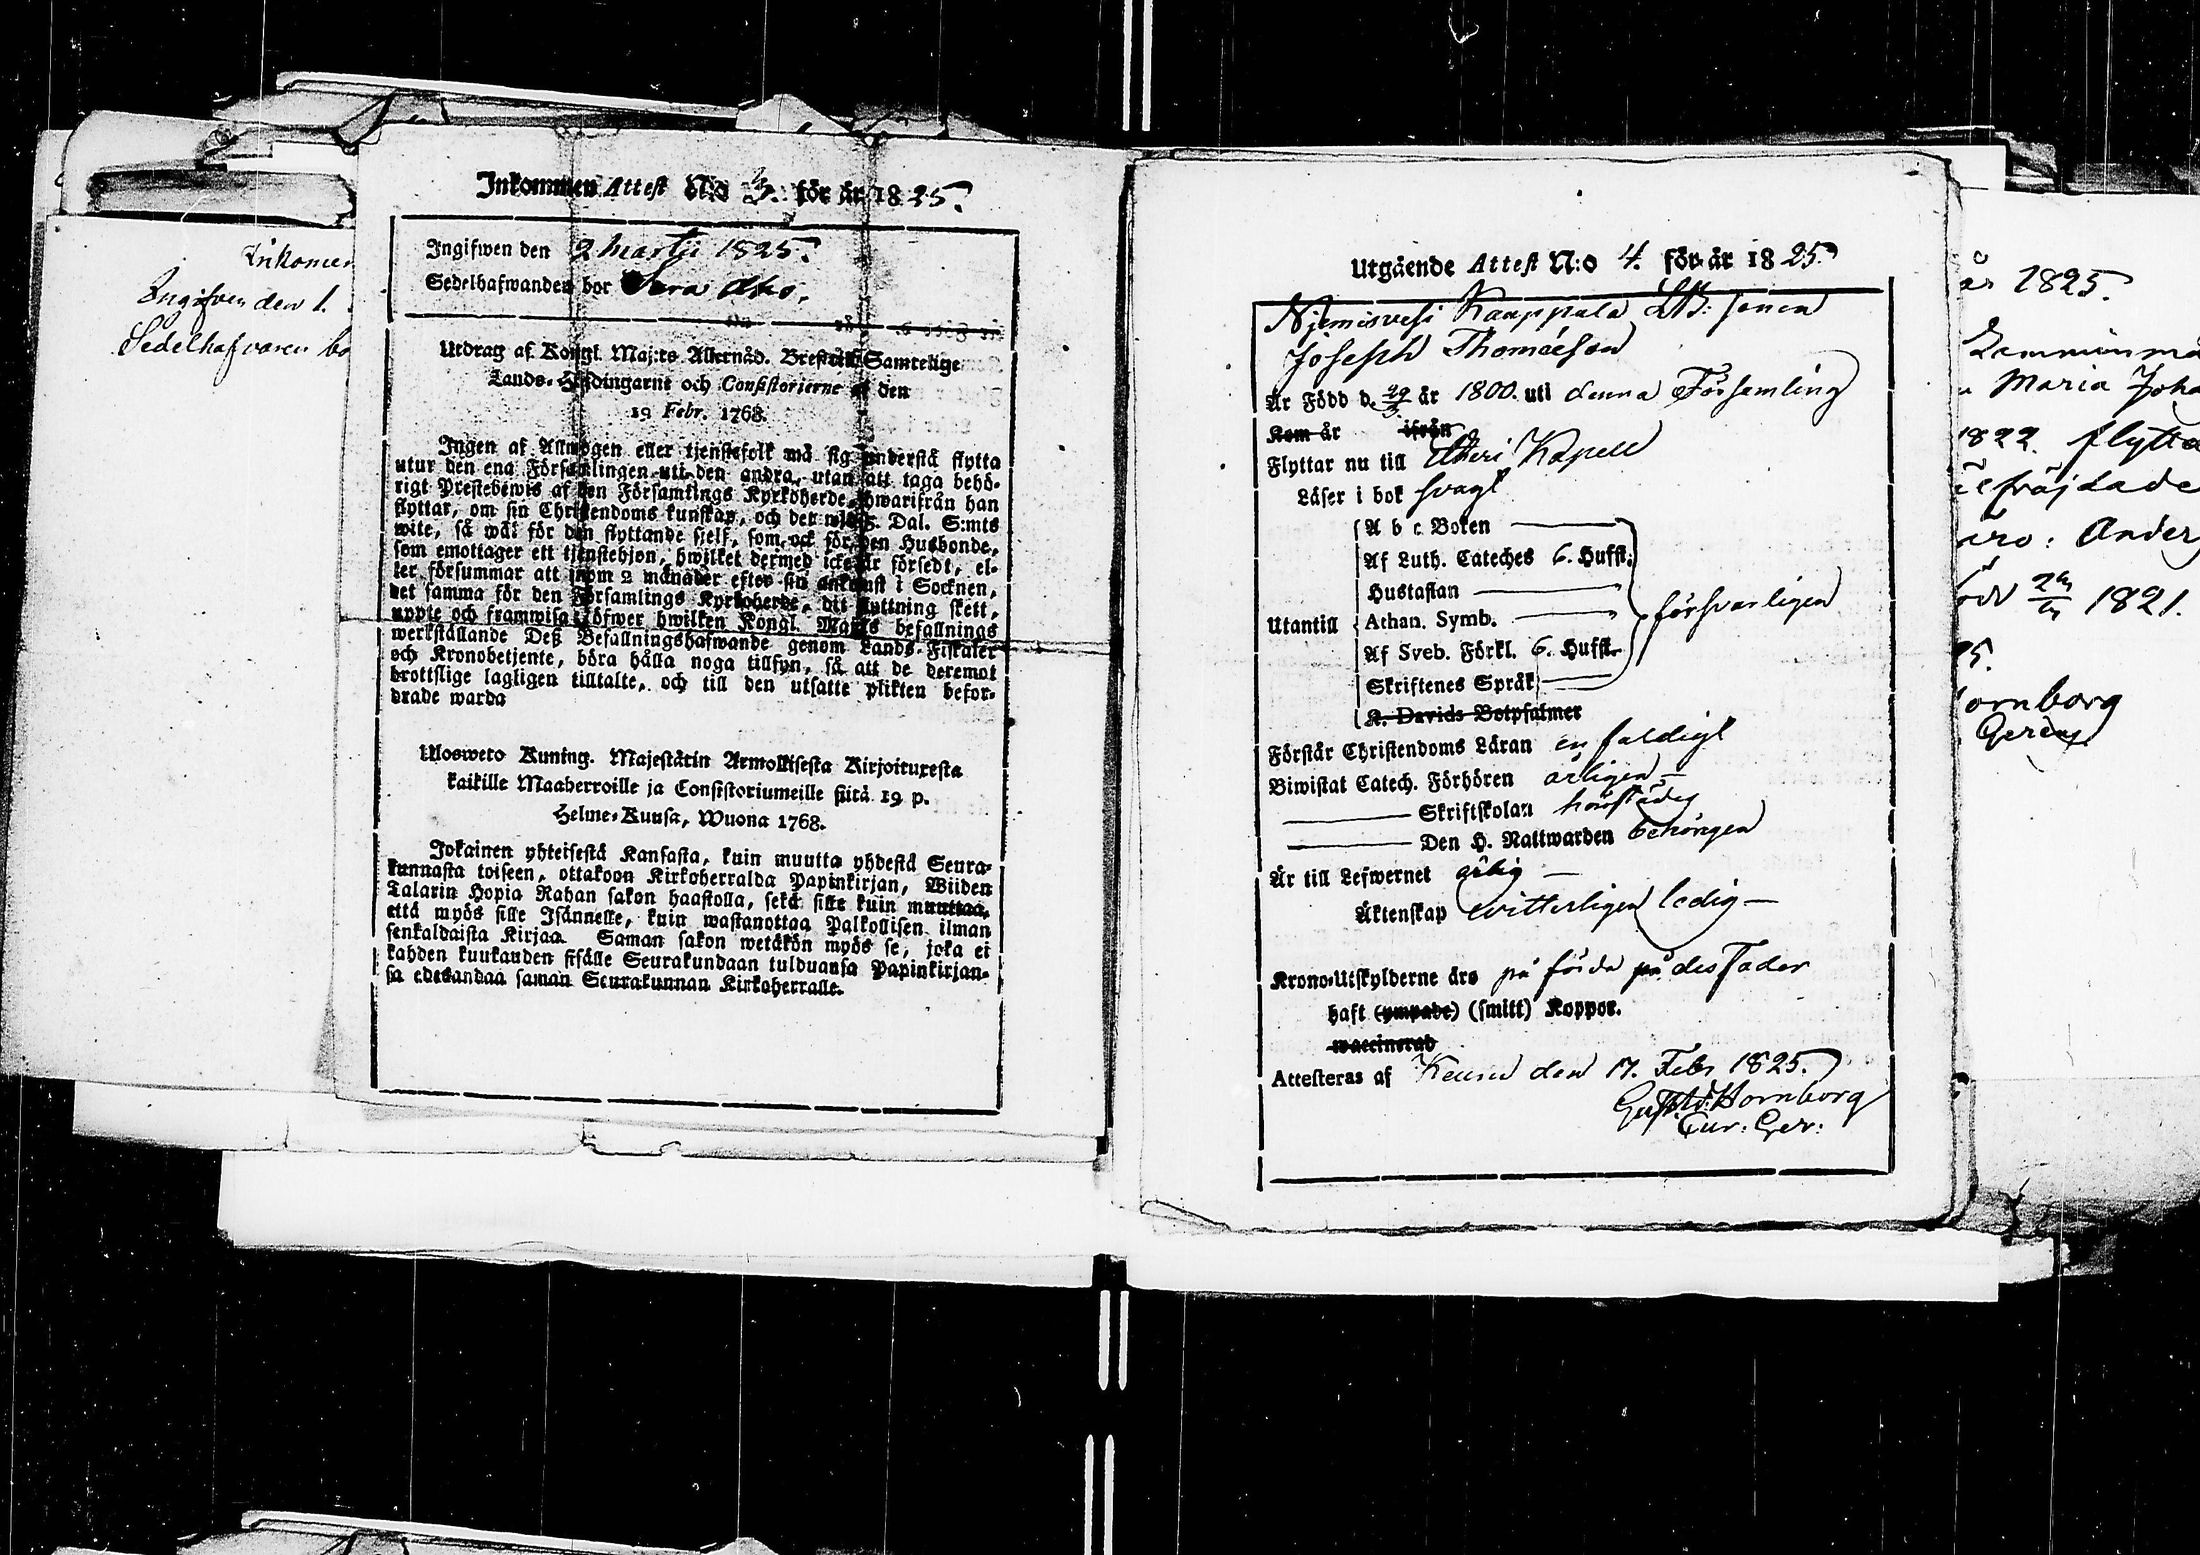 Inkommen Attest N:o 3. för år 1825.
Ingifwen den 2 Martii 1825.
Sedelhafwanden bor
Utdrag af Kongl. Maj:ts Allernåd. Bref till Samtelige
Lands-Höfdingarne och Consistorierne af den
19 Febr. 1768.
Ingen af Allmogen eller tjenstefolk må sig understå flytta
utur den ena Församlingen uti den andra, utan att taga behö-
rigt Prestebewis af den Församlings Kyrkoherde, hwarifrån han
flyttar, om sin Christendoms kunskap, och det wid 5. Dal. S:mts
wite, så wäl för den flyttande sjelf, som ock för den Husbonde,
som emottager ett tjenstehjon, hwilket dermed icke är försedt, el-
ler försummar att inom 2 månader efter sin ankomst i Socknen,
det samma för den Församlings Kyrkoherde, dit flyttning skett,
uppte och framwisa; öfwer hwilken Kongl. Maj:ts befallnings
werkställande Deß Befallningshafwande genom Lands-Fiskaler
och Kronobetjente, böra hålla noga tillsyn, så att de deremot
brottslige lagligen tilltalte, och till den utsatte plikten befor-
drade warda
Ulosweto Kuning. Majestätin Armollisesta Kirjoituxesta
kaikille Maaherroille ja Consistoriumeille siitä 19 p.
Helme-Kuusa, Wuona 1768.
Jokainen yhteisestä Kansasta, kuin muutta yhdestä Seura-
kunnasta toiseen, ottakoon Kirkoherralda Papinkirjan, Wiiden
Talarin Hopia Rahan sakon haastolla, sekä sille kuin muuttaa,
että myös sille Isännelle, kuin wastanottaa Palkollisen ilman
senkaldaista Kirjaa. Saman sakon wetäkön myös se, joka ei
kahden kuukauden sisälle Seurakundaan tulduansa Papinkirjan-
sa edesandaa saman Seurakunnan Kirkoherralle.
Inkomen
Ingifven den 1.
Sedelhafvaren bo
Utgående Attest N:o 4. för år 1825
Njemisvesi Kauppala Sonen
Joseph Thomasson
Är Född d. år 1800. uti denna Församling
Kom år ifrån
Flyttar nu till Etseri Kapell
Läser i bok svagt
A b c Boken
Af Luth. Cateches 6. Hufst.
Hustaflan
Utantill Athan. Symb. försvarligen
Af Sveb. Förkl. 6. Hufst.
Skriftenes Språk
K. Davids Botpsalmer
Förstår Christendoms Läran enfaldigt
Biwistat Catech. Förhören årligen
Skriftskolan härstädes
Den H. Nattwarden behörigen
Är till Lefwernet ärlig
Äktenskap vitterligen ledig
Krono-Utskylderne äro påförda på des Fader
haft (ympade) (smitt) Koppor.
waccinerad
Attesteras af Keuru den 17. Febr 1825.
Gust. Hornborg
Cur: Ger:
år 1825.
Maria Joha
1822. flytta
Ander
1821.
ornborg
Gerens